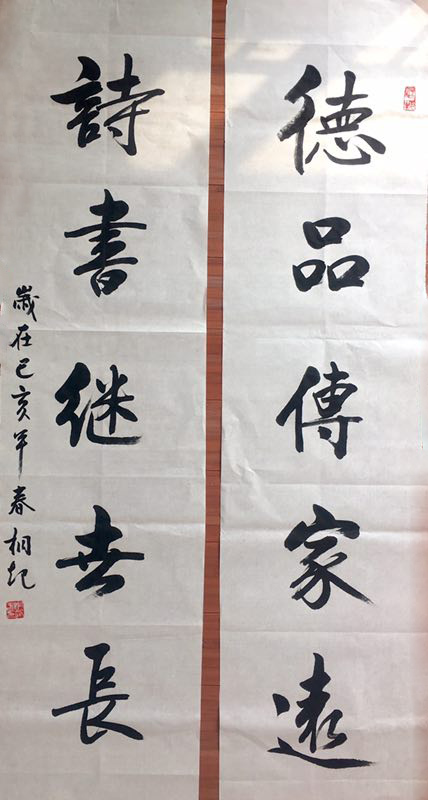 德品傳家遠
詩書继世長
歲在己亥年春相起